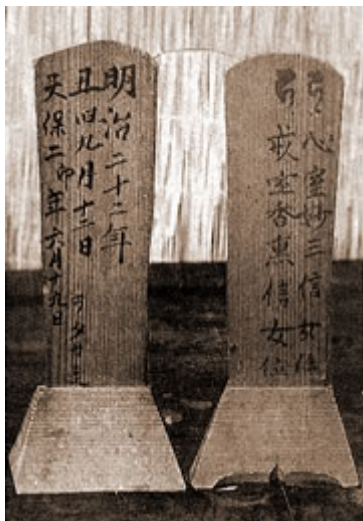 心室妙三信女位
室杏薫信女位
明治二十二年
丑 九月十二日
天保二卯年六月十九日